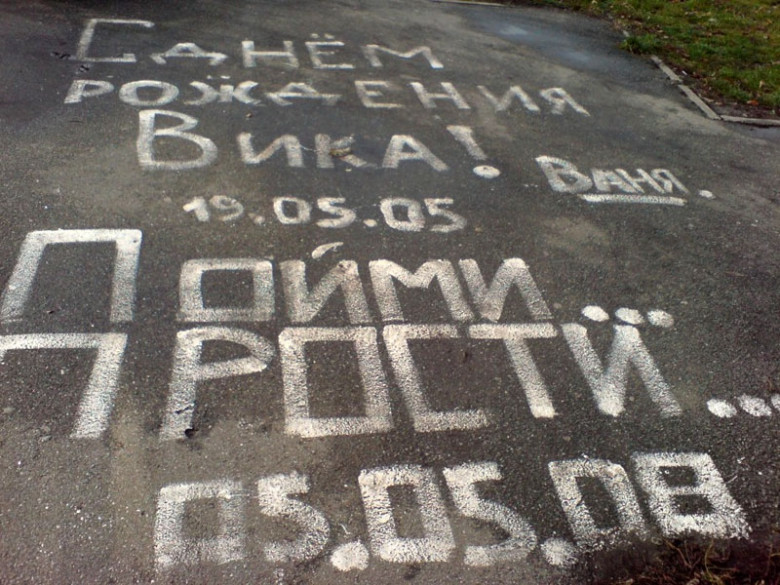 С ДНЁМ
РОЖДЕНИЯ
ВИКА!
ВАНЯ.
19.05.05
ПОЙМИ...
ПРОСТИ...
05.05.08